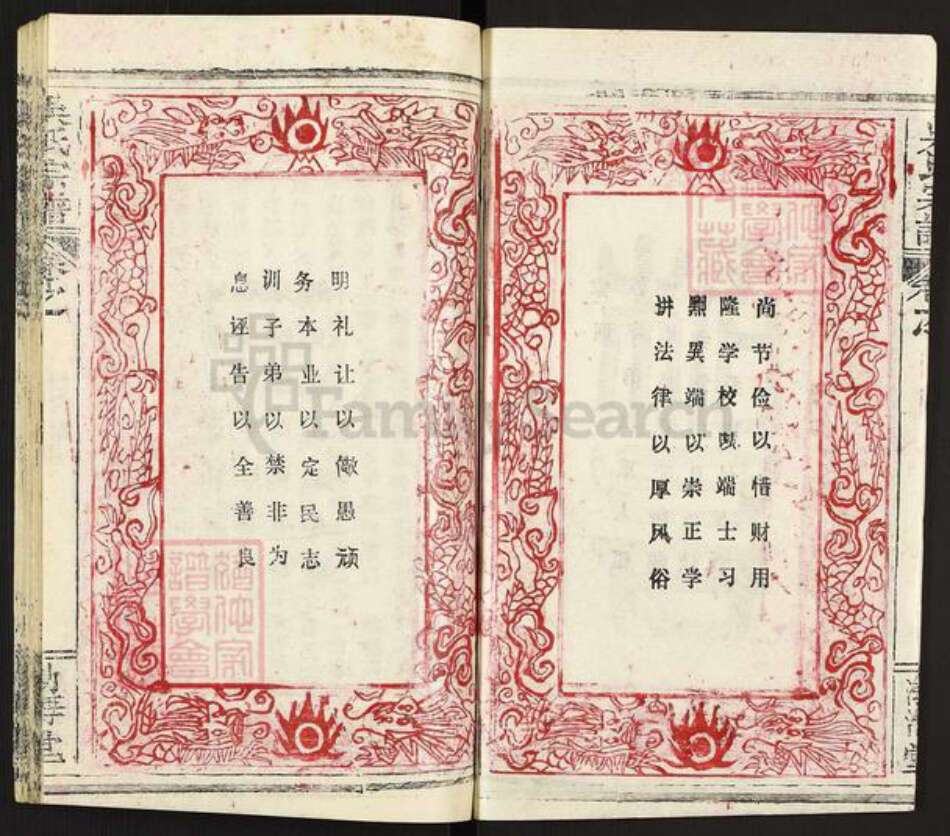 尚节俭以惜财用
隆学校以端士习
黑异端以崇正学
讲法律以厚风俗
明礼让以儆愚顽
务本业以定民志
训子弟以禁非为
息诬告以全善良
FamilySearch